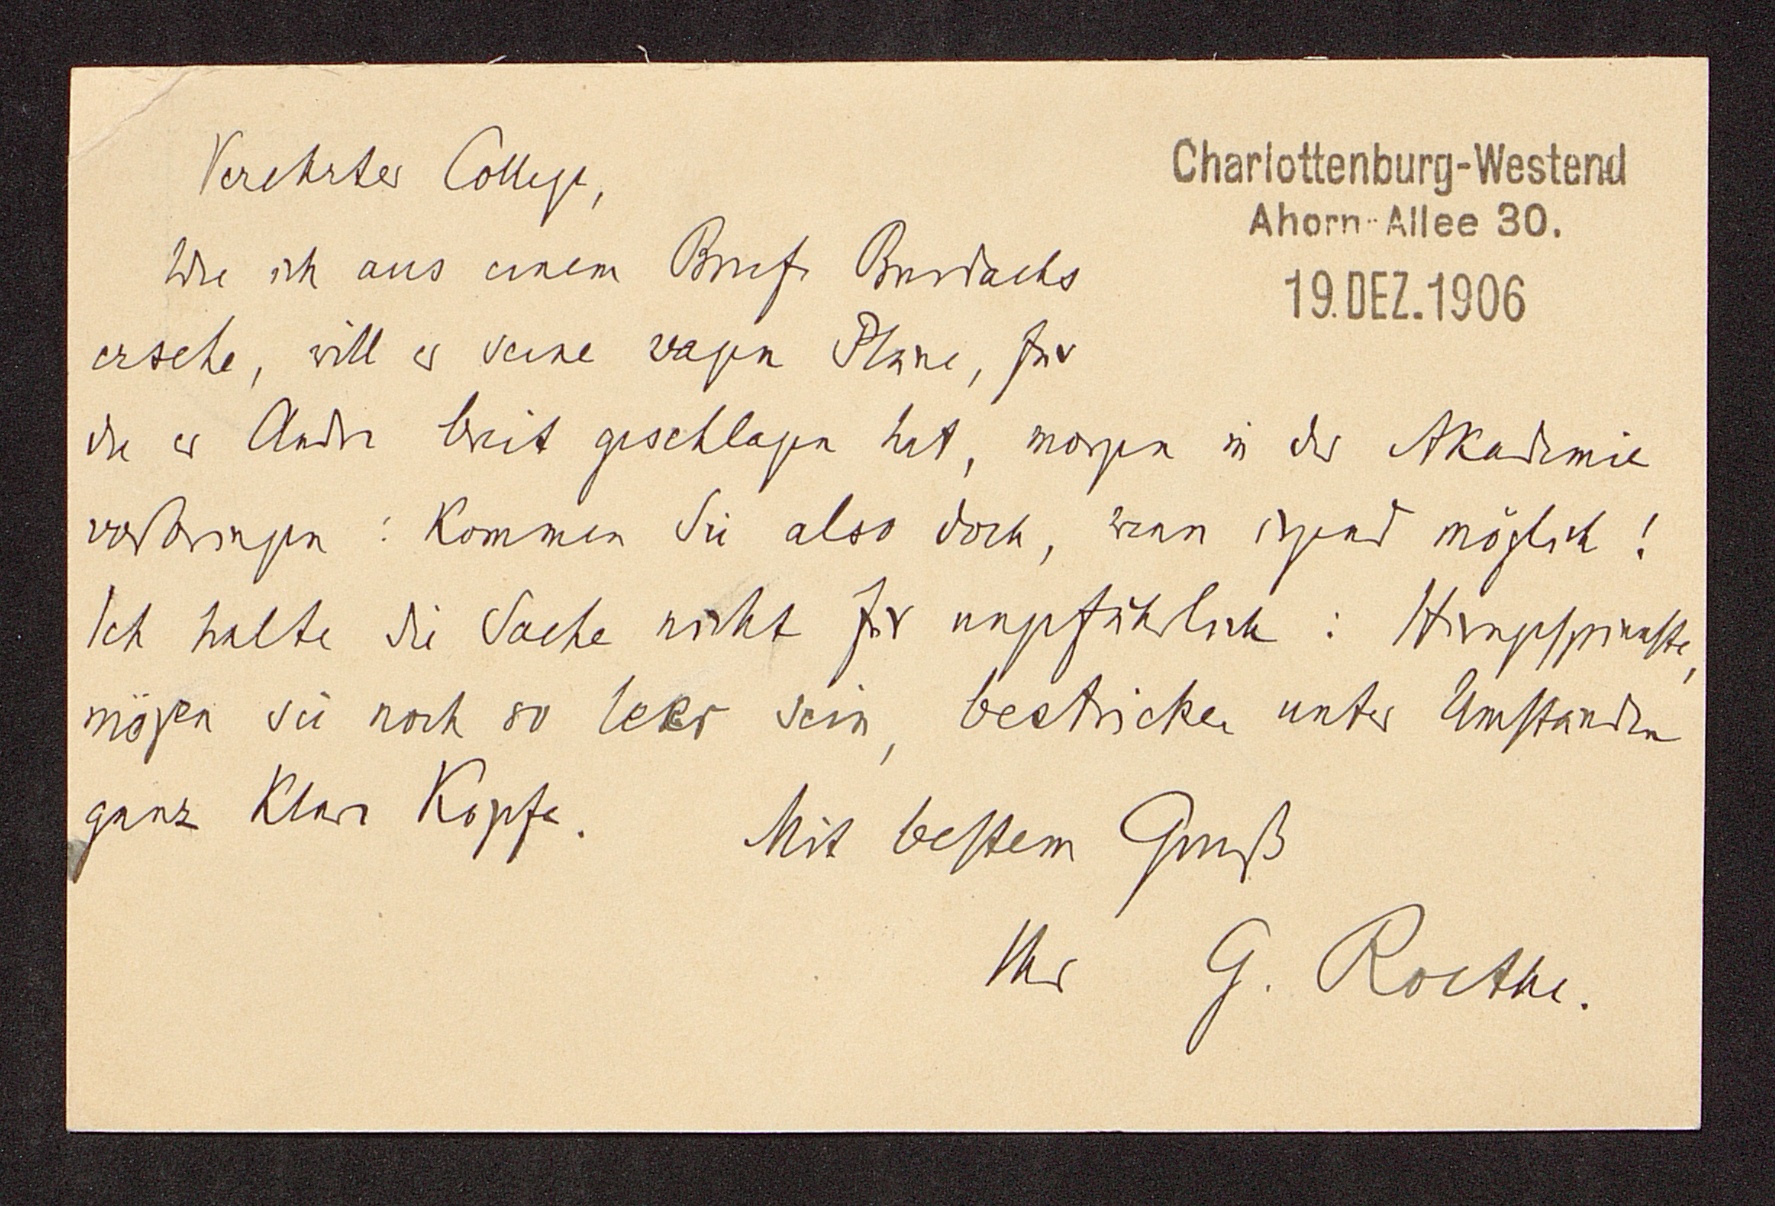 Charlottenburg-Westend
Ahorn-Allee 30.
19.DEZ.1906
Verehrter College,
Wie ich aus einem Briefe Burdachs
ersehe, will er seine vagen Pläne, für
die er Andre breit geschlagen hat, morgen in der Akademie
vorbringen: Kommen Sie also doch, wenn irgend möglich!
Ich halte die Sache nicht für ungefährlich: Hirngespinste,
mögen sie noch so leer sein, bestricken unter Umständen
ganz klare Köpfe.
Mit bestem Gruß
Ihr G. Roethe.